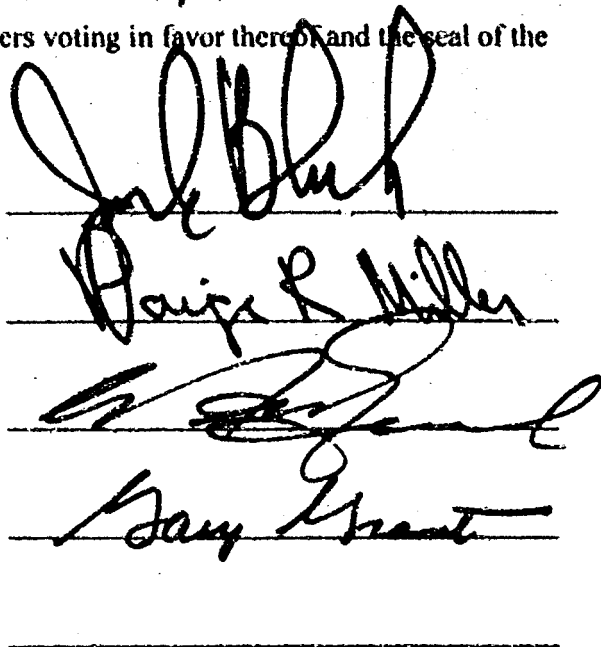 ers voting in favor thereof and the seal of the
Jack Block
Paige R Miller
Gary Grant